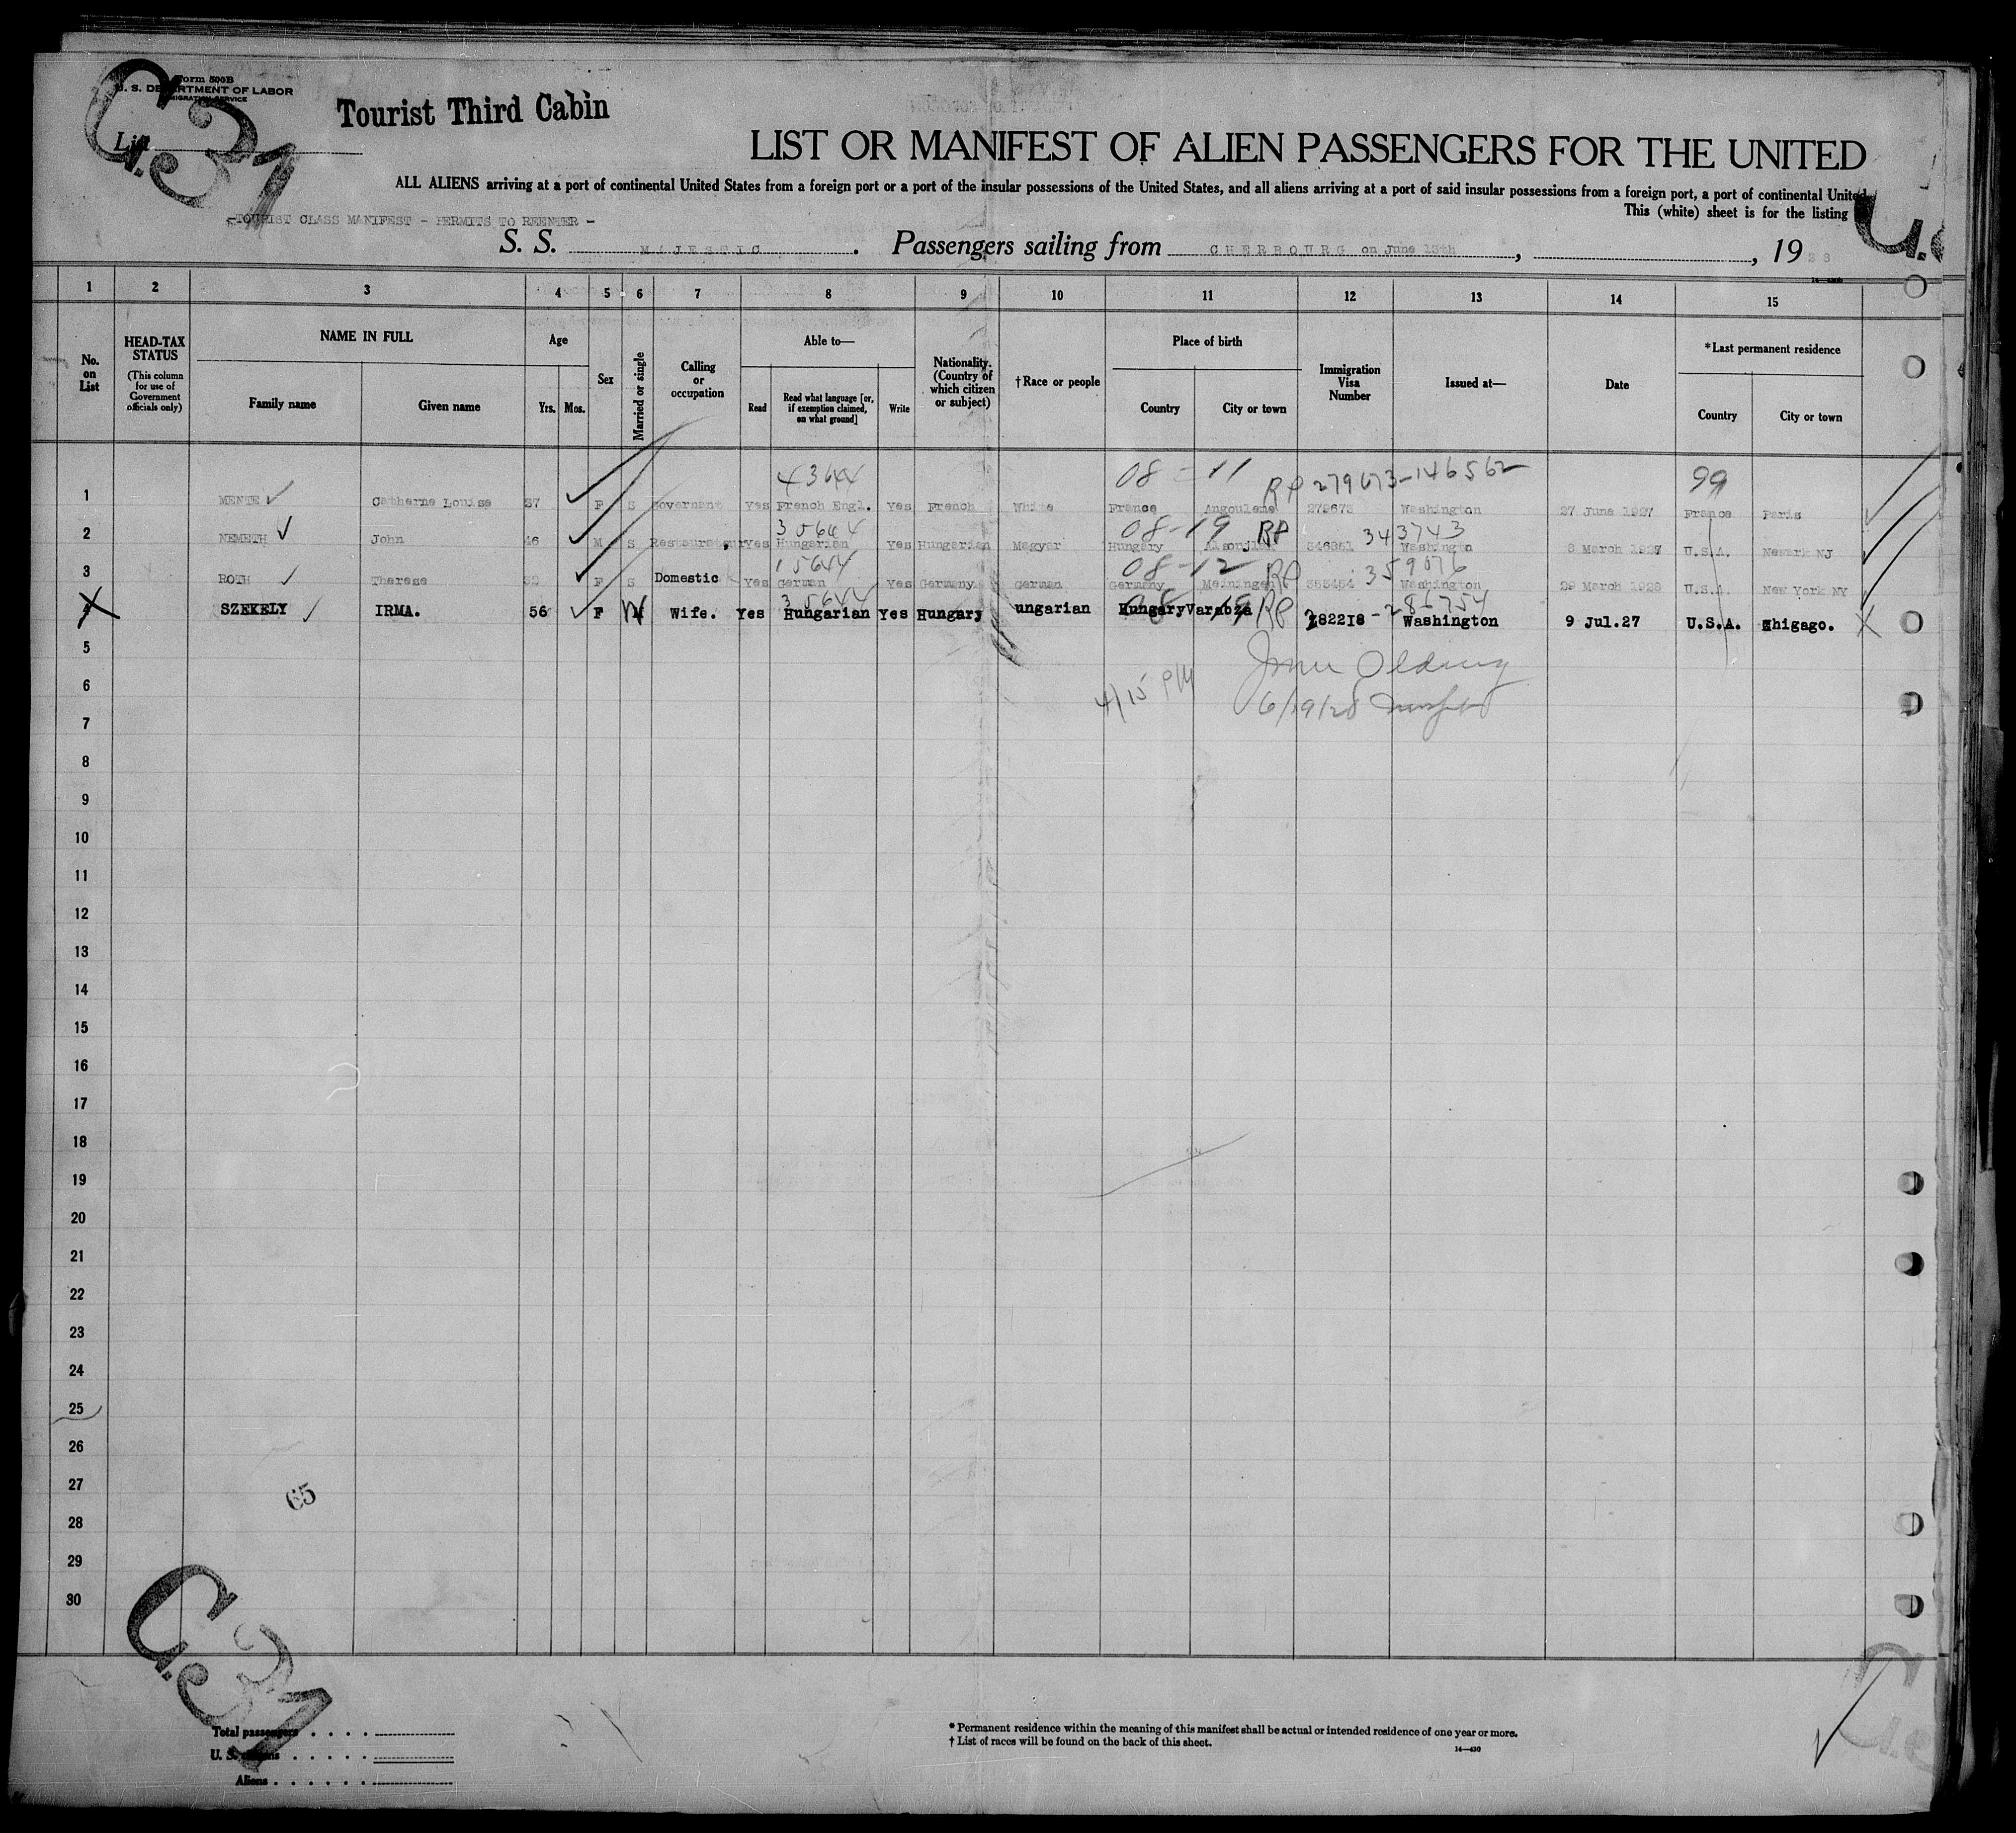 Form 500B
U. S. DEPARTMENT OF LABOR
IMMIGRATION SERVICE
Tourist Third Cabin
List
C. 31
LIST OR MANIFEST OF ALIEN PASSENGERS FOR THE UNITED
ALL ALIENS arriving at a port of continental United States from a foreign port or a port of the insular possessions of the United States, and all aliens arriving at a port of said insular possessions from a foreign port, a port of continental United
This (white) sheet is for the listing
-TOURIST CLASS MANIFEST - PERMITS TO REENTER -
S. S. MAJESTIC. Passengers sailing from CHERBOURG on June 13th, , 1928
1 2 3 4 5 6 7 8 9 10 11 12 13 14 15
No. on List
HEAD-TAX STATUS (This column for use of Government officials only)
NAME IN FULL Family name Given name
Age Yrs. Mos.
Sex
Married or single
Calling or occupation
Able to— Read Read what language [or, if exemption claimed, on what ground] Write
Nationality. (Country of which citizen or subject)
† Race or people
Place of birth Country City or town
Immigration Visa Number
Issued at—
Date
*Last permanent residence Country City or town
4364 08 - 11 RP 279673-146562 99
1 MENTE Catherne Louise 37 F S Governant Yes French Engl. Yes French White France Angouleme 279673 Washington 27 June 1927 France Paris
3564 08-19 RP 343743
2 NEMETH John 46 M S Restaurateur Yes Hungarian Yes Hungarian Magyar Hungary Washington 8 March 1928 U.S.A. Newark NJ
1564 08-12 RP 359076
3 ROTH Therese 32 F S Domestic Yes German Yes Germany German Germany Meiningen Washington 29 March 1928 U.S.A. New York NY
3564 08 19 RP 286754
4 SZEKELY IRMA. 56 F M Wife. Yes Hungarian Yes Hungary ungarian Hungary Varabza 282218 - Washington 9 Jul.27 U.S.A. Chigago.
5
6
4/15 PM
6/19/28
7
8
9
10
11
12
13
14
15
16
17
18
19
20
21
22
23
24
25
26
27
65
28
29
30
C. 31
Total passengers
U. S. citizens
Aliens
* Permanent residence within the meaning of this manifest shall be actual or intended residence of one year or more.
† List of races will be found on the back of this sheet.
14—430